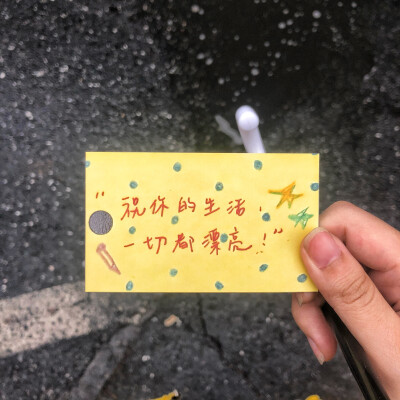 “祝你的生活，
一切都漂亮！”